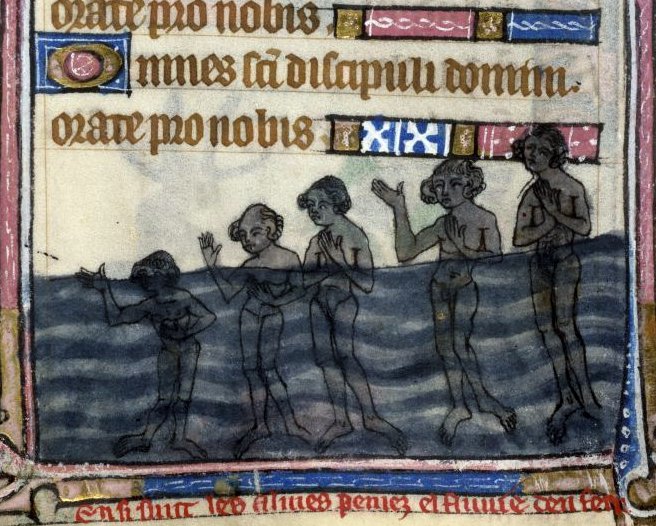 orate pro nobis.
Omnes sci discipuli domini.
orate pro nobis
Ensi sunt les almes peniez el fluuie denfer